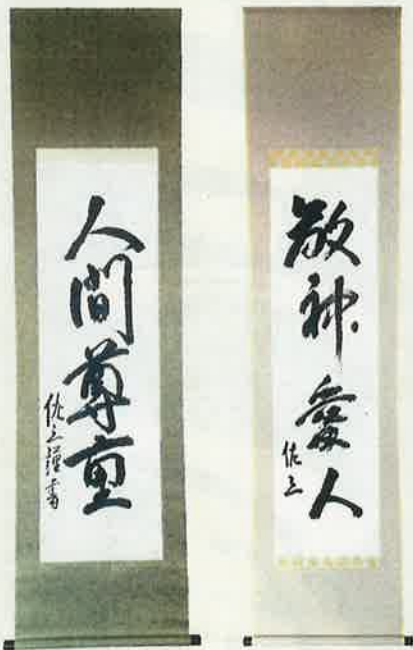 敬神愛人
佐三
人間尊重
佐三謹書